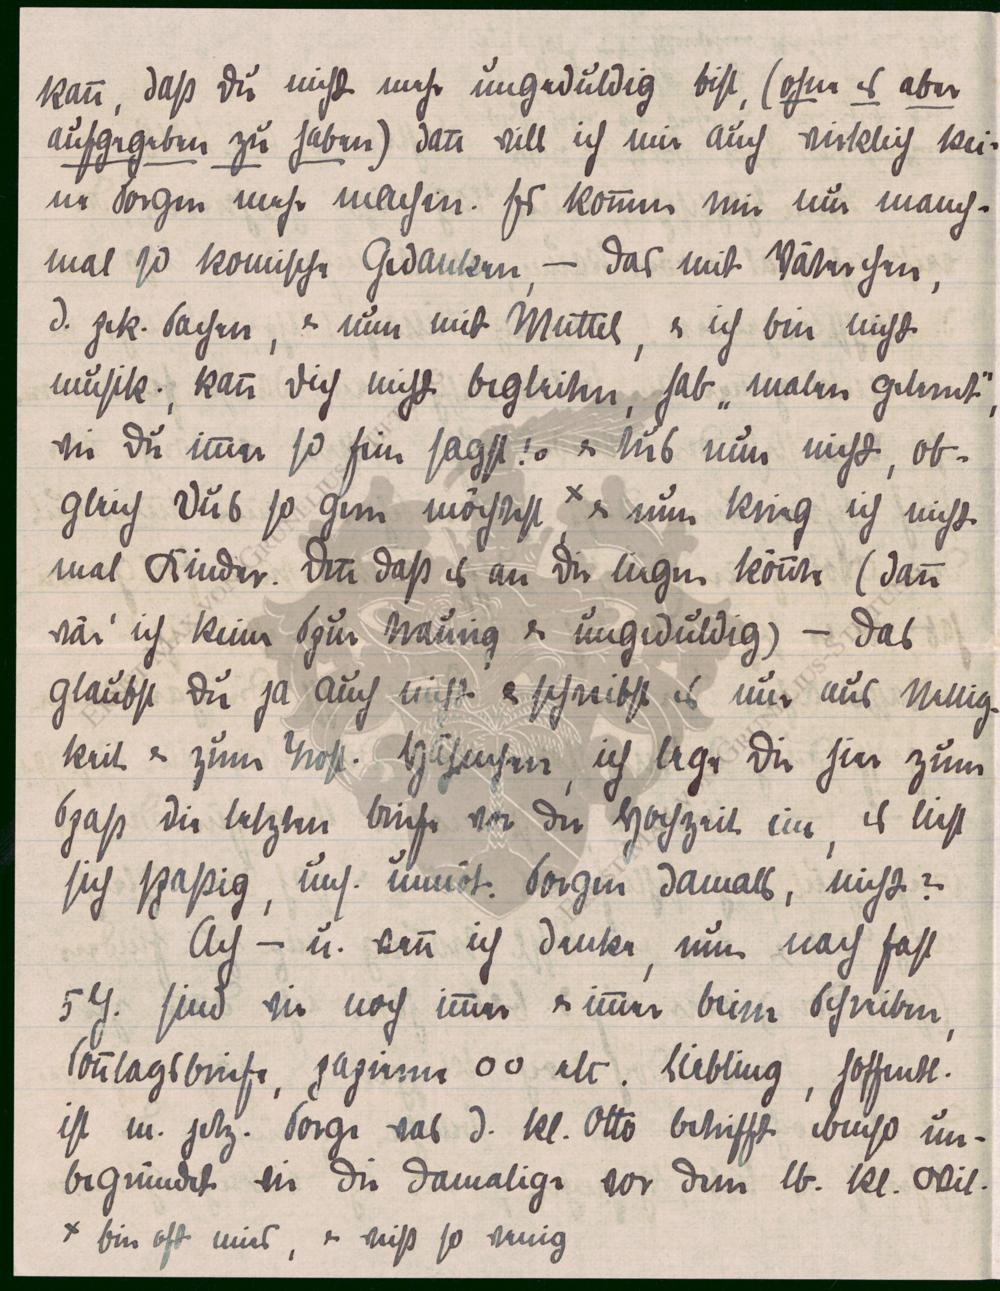 kan̄, daß Du nicht mehr ungeduldig bist, (ohne es aber
aufgegeben zu haben) dan̄ will ich mir auch wirklich kei-
ne Sorgen mehr machen. Es kom̄en mir nur manch-
mal so komische Gedanken, — das mit Väterchen,
d. Sachen, & nun mit Muttel, & ich bin nicht
musik., kan̄ Dich nicht begleiten, hab „malen gelernt",
wie Du im̄er so fein sagst! & nun nicht, ob-
gleich Du's so gern möchtest x & nun krieg ich nicht
mal Kinder. Den̄ daß es an Dir liegen kön̄te (dan̄
wär' ich keine Spur traurig & ungeduldig) — das
glaubst Du ja auch nicht & schreibst es nur aus Nettig-
keit & zum Trost. Häschen, ich lege Dir hier zum
Spaß die letzten Briefe vor der Hochzeit ein, es liest
sich spaßig, uns. unnöt. Sorgen damals, nicht?
Ach — u. wen̄ ich denke, nun nach fast
5 J. sind wir noch im̄er & im̄er beim Schreiben,
Son̄tagsbriefe, papierne oo etc. Liebling, hoffentl.
ist m. jetz. Sorge was d. kl. Otto betrifft ebenso un-
begründet wie die damalige vor dem lb. kl. Wil.
x bin oft müde, & weiß so wenig